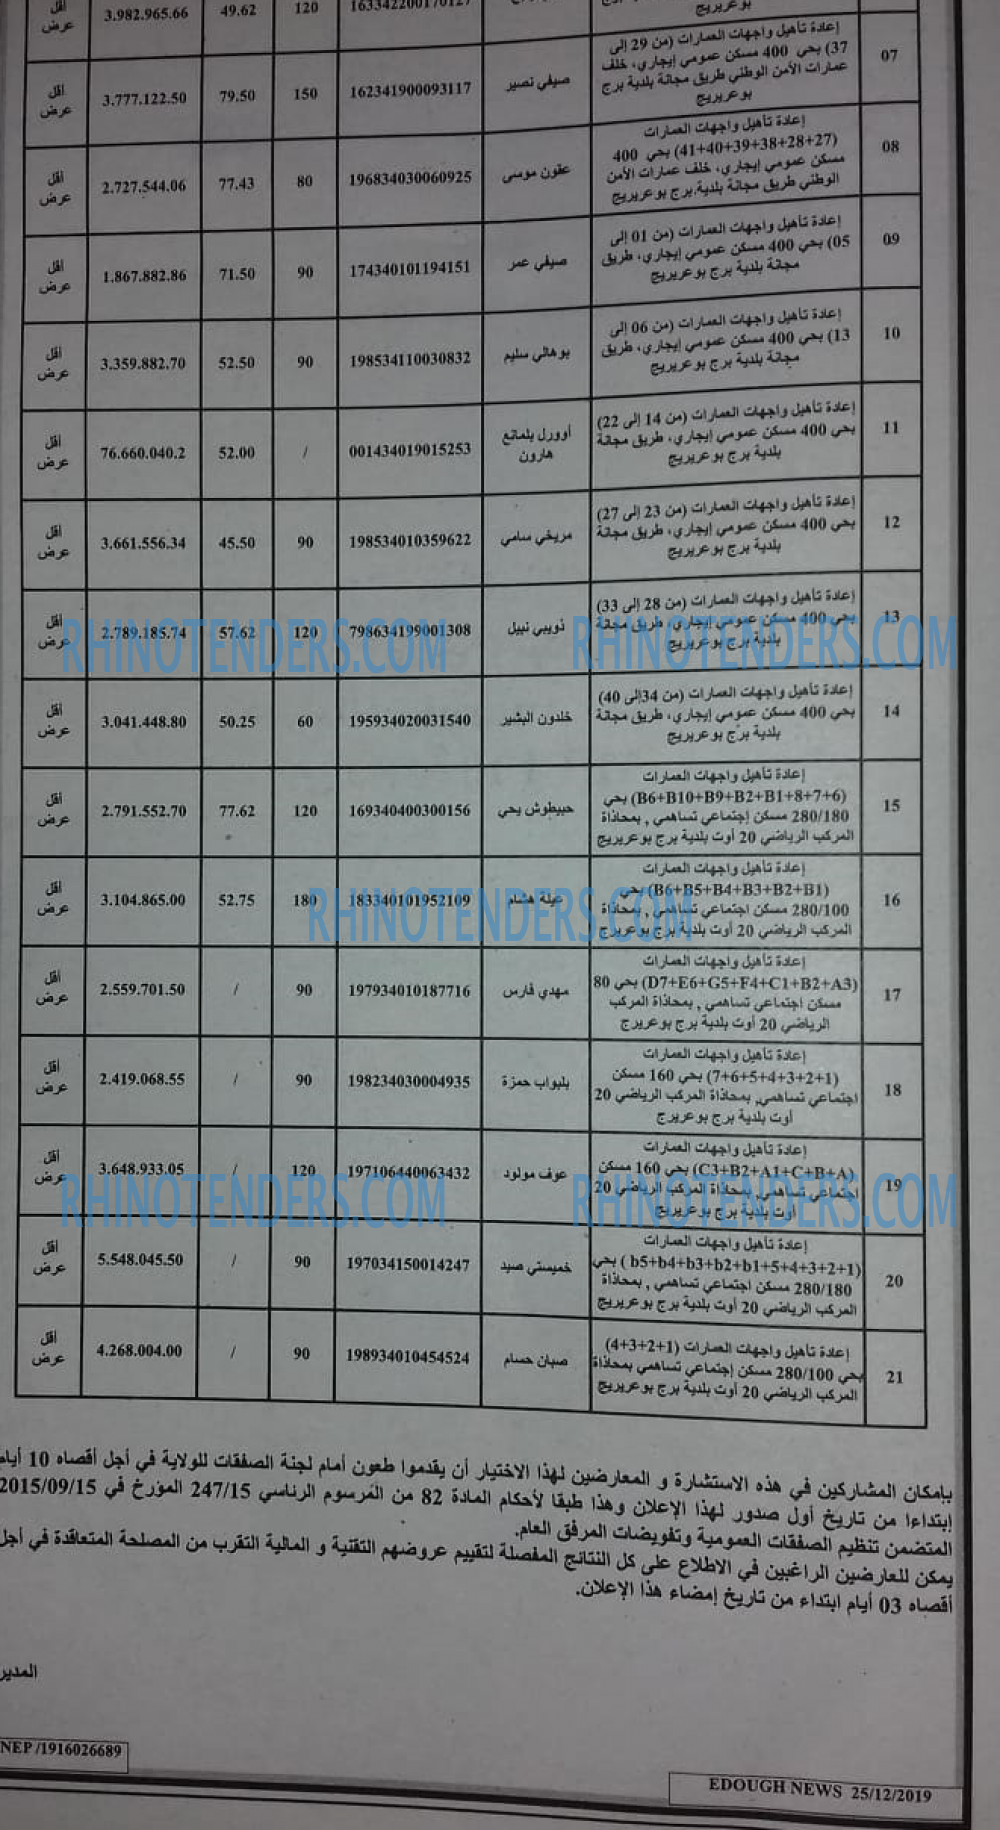 بوعريريج
163342200170127
120
49.62
3.982.965.66
أقل
عرض
07
إعادة تأهيل واجهات العمارات (من 29 إلى
37) بحي 400 مسكن عمومي إيجاري، خلف
عمارات الأمن الوطني طريق مجانة بلدية برج
بوعريريج
صيفي نصير
162341900093117
150
79.50
3.777.122.50
أقل
عرض
08
إعادة تأهيل واجهات العمارات
(27+28+38+39+40+41) بحي 400
مسكن عمومي إيجاري، خلف عمارات الأمن
الوطني طريق مجانة بلدية.برج بوعريريج
عقون موسى
196834030060925
80
77.43
2.727.544.06
أقل
عرض
09
إعادة تأهيل واجهات العمارات (من 01 إلى
05) بحي 400 مسكن عمومي إيجاري، طريق
مجانة بلدية برج بوعريريج
صيفي عمر
174340101194151
90
71.50
1.867.882.86
أقل
عرض
10
إعادة تأهيل واجهات العمارات (من 06 إلى
13) بحي 400 مسكن عمومي إيجاري، طريق
مجانة بلدية برج بوعريريج
بوهالي سليم
198534110030832
90
52.50
3.359.882.70
أقل
عرض
11
إعادة تأهيل واجهات العمارات (من 14 إلى 22)
بحي 400 مسكن عمومي إيجاري، طريق مجانة
بلدية برج بوعريريج
أوورل بلمانع
هارون
001434019015253
/
52.00
76.660.040.2
أقل
عرض
12
إعادة تأهيل واجهات العمارات (من 23 إلى 27)
بحي 400 مسكن عمومي إيجاري، طريق مجانة
بلدية برج بوعريريج
مريخي سامي
198534010359622
90
45.50
3.661.556.34
أقل
عرض
13
إعادة تأهيل واجهات العمارات (من 28 إلى 33)
بحي 400 مسكن عمومي إيجاري، طريق مجانة
بلدية برج بوعريريج
ذويبي نبيل
798634199001308
120
57.62
2.789.185.74
أقل
عرض
RHINOTENDERS.COM
RHINOTENDERS.COM
14
إعادة تأهيل واجهات العمارات (من 34إلى 40)
بحي 400 مسكن عمومي إيجاري، طريق مجانة
بلدية برج بوعريريج
خلدون البشير
195934020031540
60
50.25
3.041.448.80
أقل
عرض
15
إعادة تأهيل واجهات العمارات
(6+7+8+B6+B10+B9+B2+B1) بحي
280/180 مسكن إجتماعي تساهمي , بمحاذاة
المركب الرياضي 20 أوت بلدية برج بوعريريج
حبيطوش يحي
169340400300156
120
77.62
2.791.552.70
أقل
عرض
16
إعادة تأهيل واجهات العمارات
(B6+B5+B4+B3+B2+B1) بحي
280/100 مسكن اجتماعي تساهمي , بمحاذاة
المركب الرياضي 20 أوت بلدية برج بوعريريج
عيلة هشام
183340101952109
180
52.75
3.104.865.00
أقل
عرض
RHINOTENDERS.COM
17
إعادة تأهيل واجهات العمارات
(D7+E6+G5+F4+C1+B2+A3) بحي 80
مسكن اجتماعي تساهمي , بمحاذاة المركب
الرياضي 20 أوت بلدية برج بوعريرج
مهدي فارس
197934010187716
90
/
2.559.701.50
أقل
عرض
18
إعادة تأهيل واجهات العمارات
(1+2+3+4+5+6+7) بحي 160 مسكن
اجتماعي تساهمي, بمحاذاة المركب الرياضي 20
أوت بلدية برج بوعريرج
بلبواب حمزة
198234030004935
90
/
2.419.068.55
أقل
عرض
19
إعادة تأهيل واجهات العمارات
(C3+B2+A1+C+B+A) بحي 160 مسكن
اجتماعي تساهمي, بمحاذاة المركب الرياضي 20
أوت بلدية برج بوعريريج
عوف مولود
197106440063432
120
/
3.648.933.05
أقل
عرض
RHINOTENDERS.COM
RHINOTENDERS.COM
20
إعادة تأهيل واجهات العمارات
(b5+b4+b3+b2+b1+5+4+3+2+1 ) بحي
280/180 مسكن اجتماعي تساهمي , بمحاذاة
المركب الرياضي 20 أوت بلدية برج بوعريريج
خميستي صيد
197034150014247
90
/
5.548.045.50
أقل
عرض
21
إعادة تأهيل واجهات العمارات (1+2+3+4)
بحي 280/100 مسكن إجتماعي تساهمي بمحاذاة
المركب الرياضي 20 أوت بلدية برج بوعريريج
صبان حسام
198934010454524
90
/
4.268.004.00
أقل
عرض
بإمكان المشاركين في هذه الاستشارة و المعارضين لهذا الاختيار أن يقدموا طعون أمام لجنة الصفقات للولاية في أجل أقصاه 10 أيام
إبتداءا من تاريخ أول صدور لهذا الإعلان وهذا طبقا لأحكام المادة 82 من المرسوم الرئاسي 247/15 المؤرخ في 2015/09/15
المتضمن تنظيم الصفقات العمومية وتفويضات المرفق العام.
يمكن للعارضين الراغبين في الاطلاع على كل النتائج المفصلة لتقييم عروضهم التقنية و المالية التقرب من المصلحة المتعاقدة في أجل
أقصاه 03 أيام ابتداء من تاريخ إمضاء هذا الإعلان.
المدير
NEP /1916026689
EDOUGH NEWS 25/12/2019